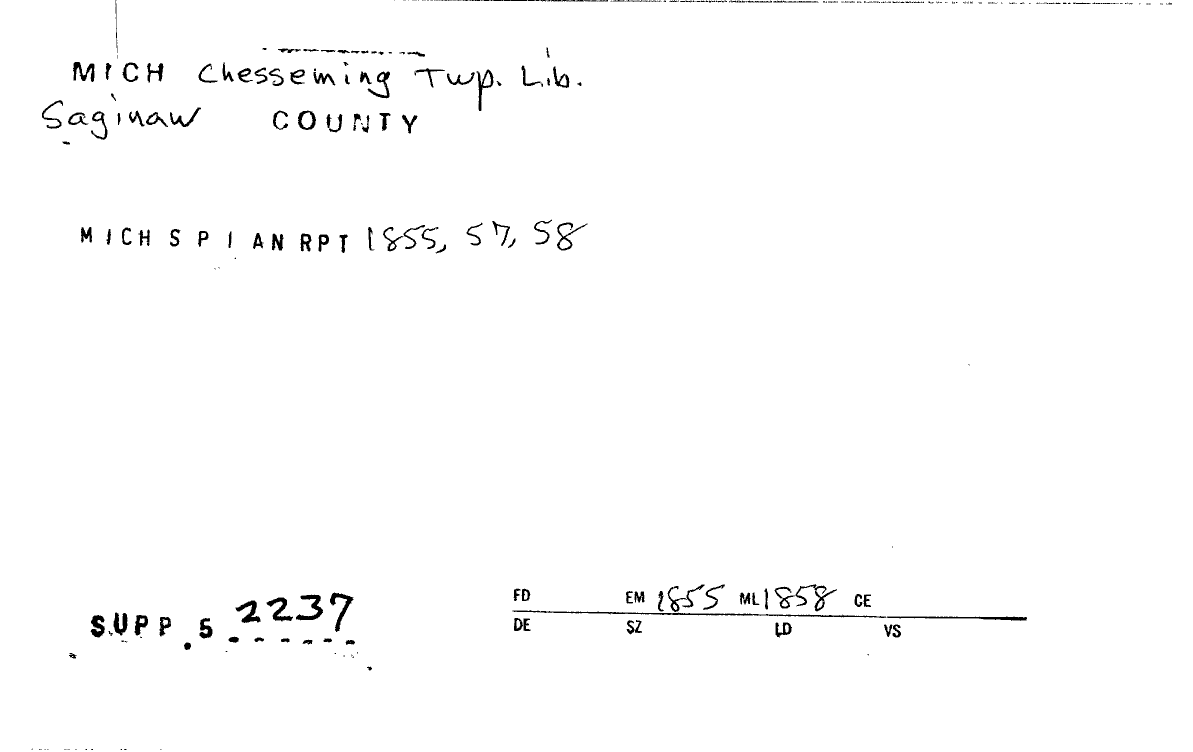 MICH Chesseming Twp. Lib.
Saginaw COUNTY
MICH S P I AN RPT 1855, 57, 58
SUPP.5 2237
FD EM 1855 ML 1858 CE
DE SZ LD VS